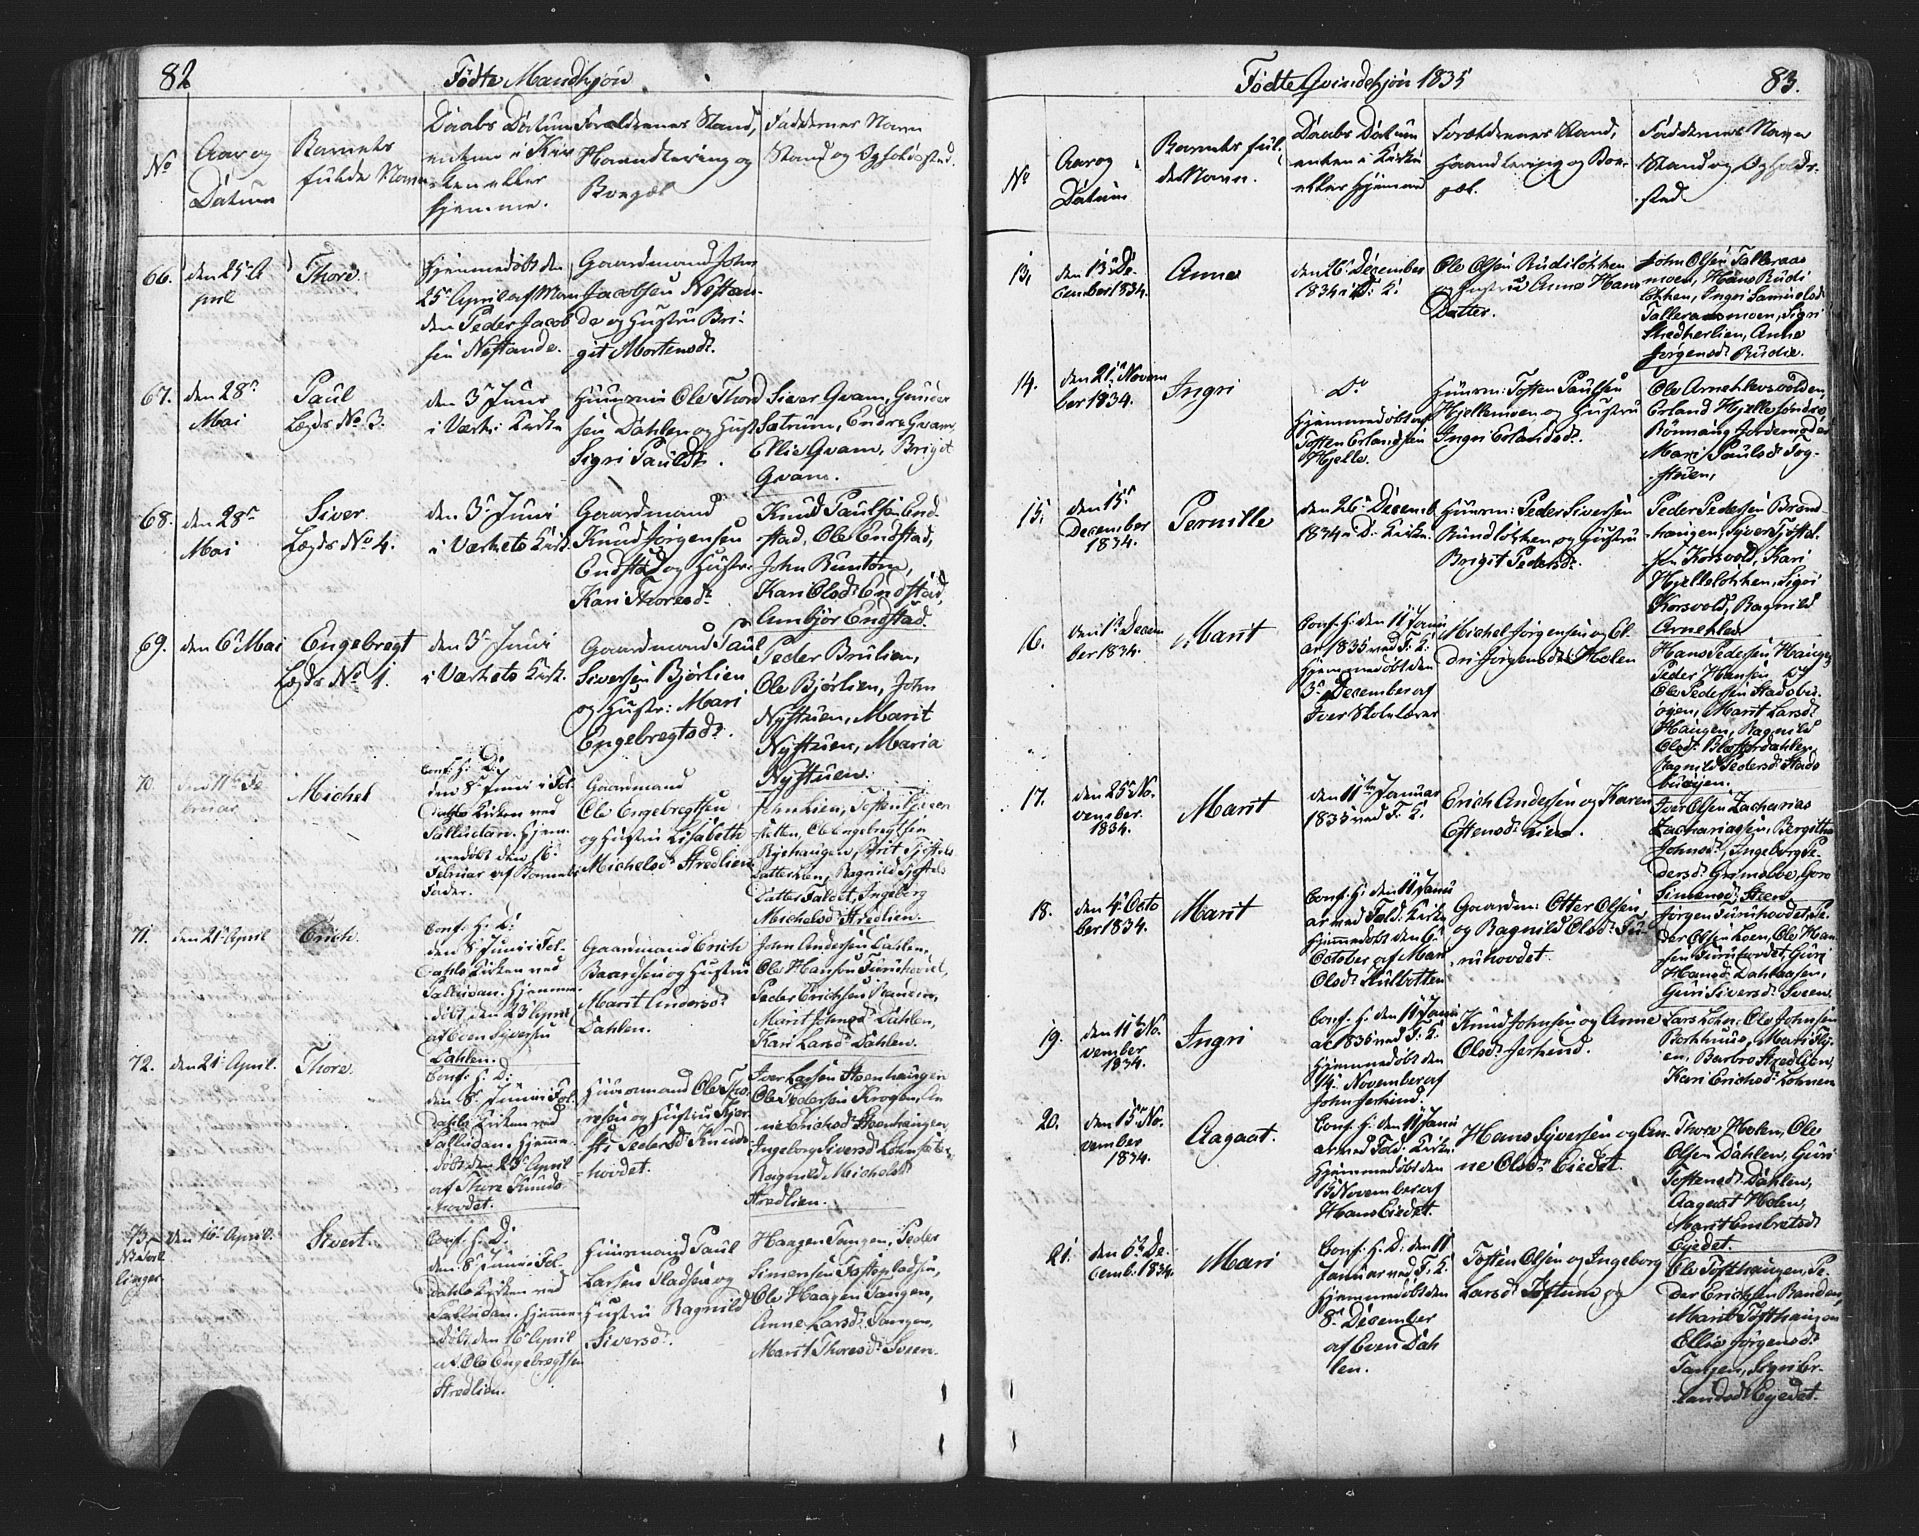 82
Fødte Mandkjøn
No
Aar og
Datum
Barnets
fulde Navn
Daabs Datum
enten i Kir
ken eller
hjemme.
Forældrenes Stand,
Haandtering og
Boepæl
Faddernes Navn
Stand og Opholdssted.
66.
den 25de A
pril
Thore
Hjemmedøbt den
25de April af Mor
den Peder Jacob
sen
Gaardmand John
Jacobsen
de og Hustru Bri-
git Mortensdr.
67.
den 28de
Mai
Paul
Lægds No 3.
den 3de Juni
i Værk: Kirke
Huusm: Ole Thord
sen Dahlen og Hust:
Sigri Paulsdr.
Siver Qvam, Gunder
Sætrum, Endre Qvam,
Ellie Qvam, Brigit
Qvam.
68.
den 28de
Mai
Siver
Lægds No 4.
den 3de Juni
i Værkets Kirk.
Gaardmand
Knud Jørgensen
Endstad og Hustr:
Kari Thoresdr.
Knud Paulsen End-
stad, Ole Endstad,
John Runtom,
Kari Olsdr Endstad,
Anbjør Endstad.
69.
den 6te Mai
Engebregt
Lægds No 1.
den 3de Juni
i Værkets Kirk.
Gaardmand Paul
Siversen Bjørlien
og Hustr: Mari
Engebregtsdr.
Peder Brulien,
Ole Bjørlien, John
Nystuen, Marit
Nystuen, Maria
Nystuen.
70.
den 11te Fe
bruar
Michel
Conf: H: D:
den 8de Juni i Fol-
dahls Kirken ved
Palludan. Hjem-
medøbt den 16.
Februar af Barnets
Fader.
Gaardmand
Ole Engebregtsen
og Hustru Lisabeth
Michelsdr Stredlien.
Ole Engebregtsen
Michelsdr Stredlien.
71.
den 21de April
Erich.
Conf: H: D:
den 8de Juni i Fol-
dahls Kirken ved
Palludan. Hjemme-
døbt den 23 April
af Even Siversen
Dahlen.
Gaardmand Erich
Baardsen og Hustru
Marit Andersdr
Dahlen.
John Andersen Dahlen,
Ole Hansen Furuhovdet,
Peder Erichsen Randen,
Marit Johnsdr Dahlen,
Kari Larsdr Dahlen.
72.
den 21de April.
Thore
Conf: H: D:
den 8de Juni i Fol-
dahls Kirken ved
Palludan. Hjemme-
døbt den 25de April
af Thore Knuds
hovdet.
Huusmand Ole Tho-
resen og Hustru Kjer-
sti Pedersdr Knuds-
hovdet.
Iver Larsen Steenhaugen
Ole Pedersen Krogen, An
ne Erichsdr Steenhaugen,
Ingeborg Siversdr
Ragnild Michelsdr
Stredlien.
73.
den 16de April.
Sivert.
Conf: H: D:
den 8de Juni i Fol-
dahls Kirken ved
Palludan. Hjemme-
døbt den 16de April
af Ole Engebregtsen
Stredlien.
Huusmand Paul
Larsen Pladsen og
Hustru Ragnild
Siversdr.
Haagen Tangen, Peder
Simensen
Ole Haagen Tangen,
Anne Larsdr Tangen,
Marit Thoresdr Sveen.
Fødte Qvindekjøn 1835
83.
No
Aar og
Datum
Barnets ful-
de Navn.
Daabs Datum
enten i Kirke
eller hjemme
Forældrenes Stand,
Haandtering og Boe-
pæl.
Faddernes Navn
Stand og Opholds-
sted.
13.
den 13de De-
cember 1834.
Anne
den 26de December
1834 i D: K:
Ole Olsen Rudiløkken
og Hustru Anne Hans
Datter.
John Olsen Talleraas
moen, Hans Rudi
løkken, Ingri Samuelsdr
Talleraasmoen, Sigri
Stredherlien, Anne
Jørgensdr Rudie.
14.
den 21de Novem
ber 1834.
Ingri
Do
Hjemmedøbt af
Tosten Erlandsen
Hjelle.
Huusm: Tosten Paulsen
Hjellemoen og Hustru
Ingri Erlandsdr.
Erland Hjelle søndre
Rønnaug Jordemoder
Mari Paulsdr Tog-
støien,
15.
den 15de
December
1834.
Pernille
den 26de Decemb.
1834 i D: Kirke.
Huusm: Peder Siversen
Rundløkken og Hustru
Brigit Pedersdr.
Peder Pedersen Brænd-
haugen, Syver
Korsvold, Kari
Hjelleløkken, Sigri
Korsvold, Ragnild
16.
den 1de Decem
ber 1834.
Marit
Conf: H: den 11 Janu
ar 1835 ved F: K:
Hjemmedøbt den
3de December af
Iver Skolelærer
Michel Jørgensen og El-
dri Jørgensdr Holen
Hans Pedersen Haugen
Peder Hansen
Ole Pedersen Stadsbu-
øyen, Marit Larsdr
Haugen, Ragnild
Ragnild Pedersdr Stads
buøyen.
17.
den 25de No-
vember
1834.
Marit
den 11te Januar
1835 ved F: K:
Erich Andersen og Karen
Estensdr Lien.
Iver Olsen, Zacharias
Zachariassen, Bergitha
Johnsdr, Ingeborg Pe-
dersdr Grimsboe, Goro
Simensdr Steen
18.
den 4de Octo
ber 1834.
Marit
Conf: H: den 11 Janu
ar ved Fold: Kirke
Hjemmedøbt den 6te
October af Mari
Olsdr
Gaardm: Otter Olsen
og Ragnild Olsdr Fu-
ruhovdet.
Jørgen Furuhovdet, Pe-
der Olsen Loen, Ole Han-
sen Furuhovdet, Guri
Hansdr Dahlaasen,
Guri Siversdr Sveen.
19.
den 11te No-
vember
1834.
Ingri
Conf: H: den 11 Janu
ar 1835 ved F: K:
Hjemmedøbt den
14. November af
John Jerkind.
Knud Johnsen og Anne
Olsdr Jerkind.
Lars Lohn, Ole Johnsen
Borkhuus, Mari
en, Barbro Stredlien,
Kari Erichsdr Lohnen
20.
den 15de No-
vember
1834.
Aagaat.
Conf: H: den 11 Janu
ar ved Fold: Kirke
Hjemmedøbt den
15 November af
Hans Eiedet.
Hans Syversen og An-
ne Olsdr Eiedet.
Thore Holen, Ole
Olsen Dahlen, Guri
Tostensdr Dahlen,
Aagaat Holen,
Marit Embretsdr
Eiedet.
21.
den 6te De-
cemb: 1834.
Mari
Conf: H: D: den 11
Januar ved F: K:
Hjemmedøbt den
8de December
af Even Dah
len.
Tosten Olsen og Ingeborg
Larsdr
Ole Tosthaugen, Pe-
der Erichsen Randen,
Marit Tosthaugen
Ellie Jørgensdr
Tangen, Sigri Er-
landsdr Eiedet.